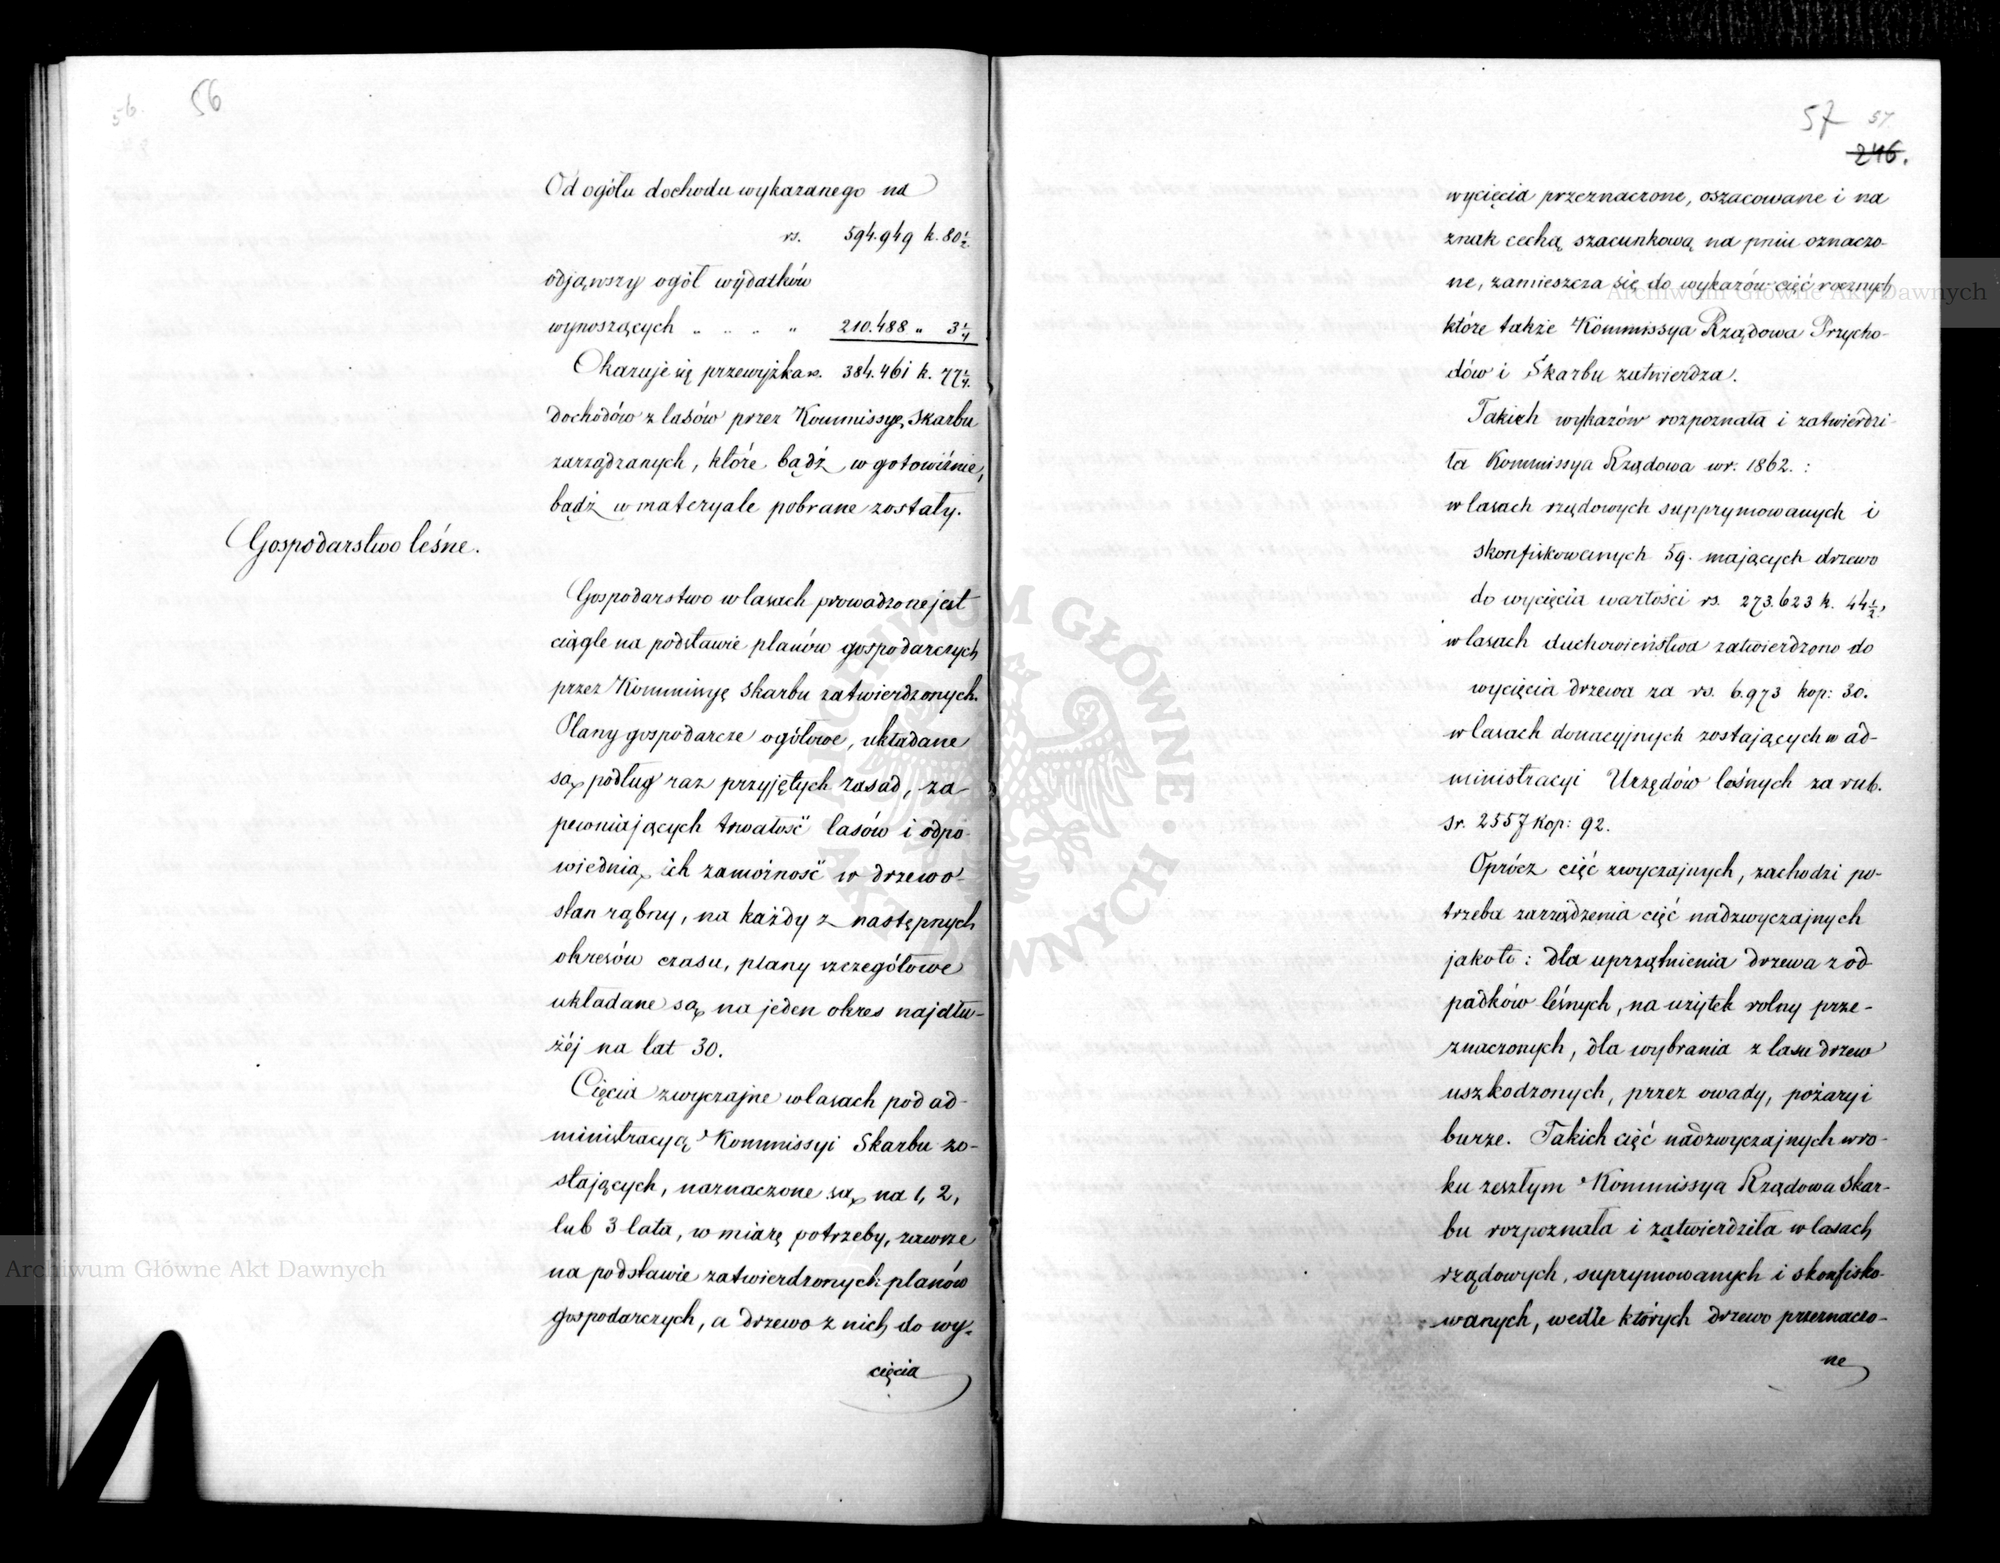 56.
56
Od ogółu dochodu wykazanego na
rs. 594.949 k. 80½
odjąwszy ogół wydatków
wynoszących „ „ „ „ 210.488 „ 3¼
Okazuje się przewyżka rs. 384.461 k. 77¼
dochodów z lasów przez Kommissyę Skarbu
zarządzanych, które bądź w gotowiźnie,
bądź w materyale pobrane zostały.
Gospodarstwo leśne.
Gospodarstwo w lasach prowadzone jest
ciągle na podstawie planów gospodarczych
przez Kommissyę Skarbu zatwierdzonych.
Plany gospodarcze ogółowe, układane
są podług raz przyjętych zasad, za-
pewniających trwałość lasów i odpo-
wiednią ich zamożność w drzewo-
stan rąbny, na każdy z następnych
okresów czasu, plany szczegółowe
układane są na jeden okres najdłu-
żéj na lat 30.
Cięcia zwyczajne w lasach pod ad-
ministracyą Kommissyi Skarbu zo-
stających, naznaczone są na 1, 2,
lub 3 lata, w miarę potrzeby, zawsze
na podstawie zatwierdzonych planów
gospodarczych, a drzewo z nich do wy-
cięcia
57 57
246.
wycięcia przeznaczone, oszacowane i na
znak cechą szacunkową na pniu oznaczo-
ne, zamieszcza się do wykazów cięć rocznych
które także Kommissya Rządowa Przycho-
dów i Skarbu zatwierdza.
Takich wykazów rozpoznała i zatwierdzi-
ła Kommissya Rządowa w r: 1862. :
w lasach rządowych supprymowanych i
skonfiskowanych 59. mających drzewo
do wycięcia wartości rs. 273.623 k. 44½,
w lasach duchowieństwa zatwierdzono do
wycięcia drzewa za rs. 6.973 kop: 30.
w lasach donacyjnych zostających w ad-
ministracyi Urzędów leśnych za rub.
sr. 2557 kop: 92.
Oprócz cięć zwyczajnych, zachodzi po-
trzeba zarządzenia cięć nadzwyczajnych
jakoto: dla uprzątnienia drzewa z od-
padków leśnych, na użytek rolny prze-
znaczonych, dla wybrania z lasu drzew
uszkodzonych, przez owady, pożary i
burze. Takich cięć nadzwyczajnych w ro-
ku zeszłym Kommissya Rządowa Skar-
bu rozpoznała i zatwierdziła w lasach
rządowych, suprymowanych i skonfisko-
wanych, wedle których drzewo przeznaczo-
ne
Archiwum Główne Akt Dawnych
Archiwum Główne Akt Dawnych
ARCHIWUM GŁÓWNE AKT DAWNYCH